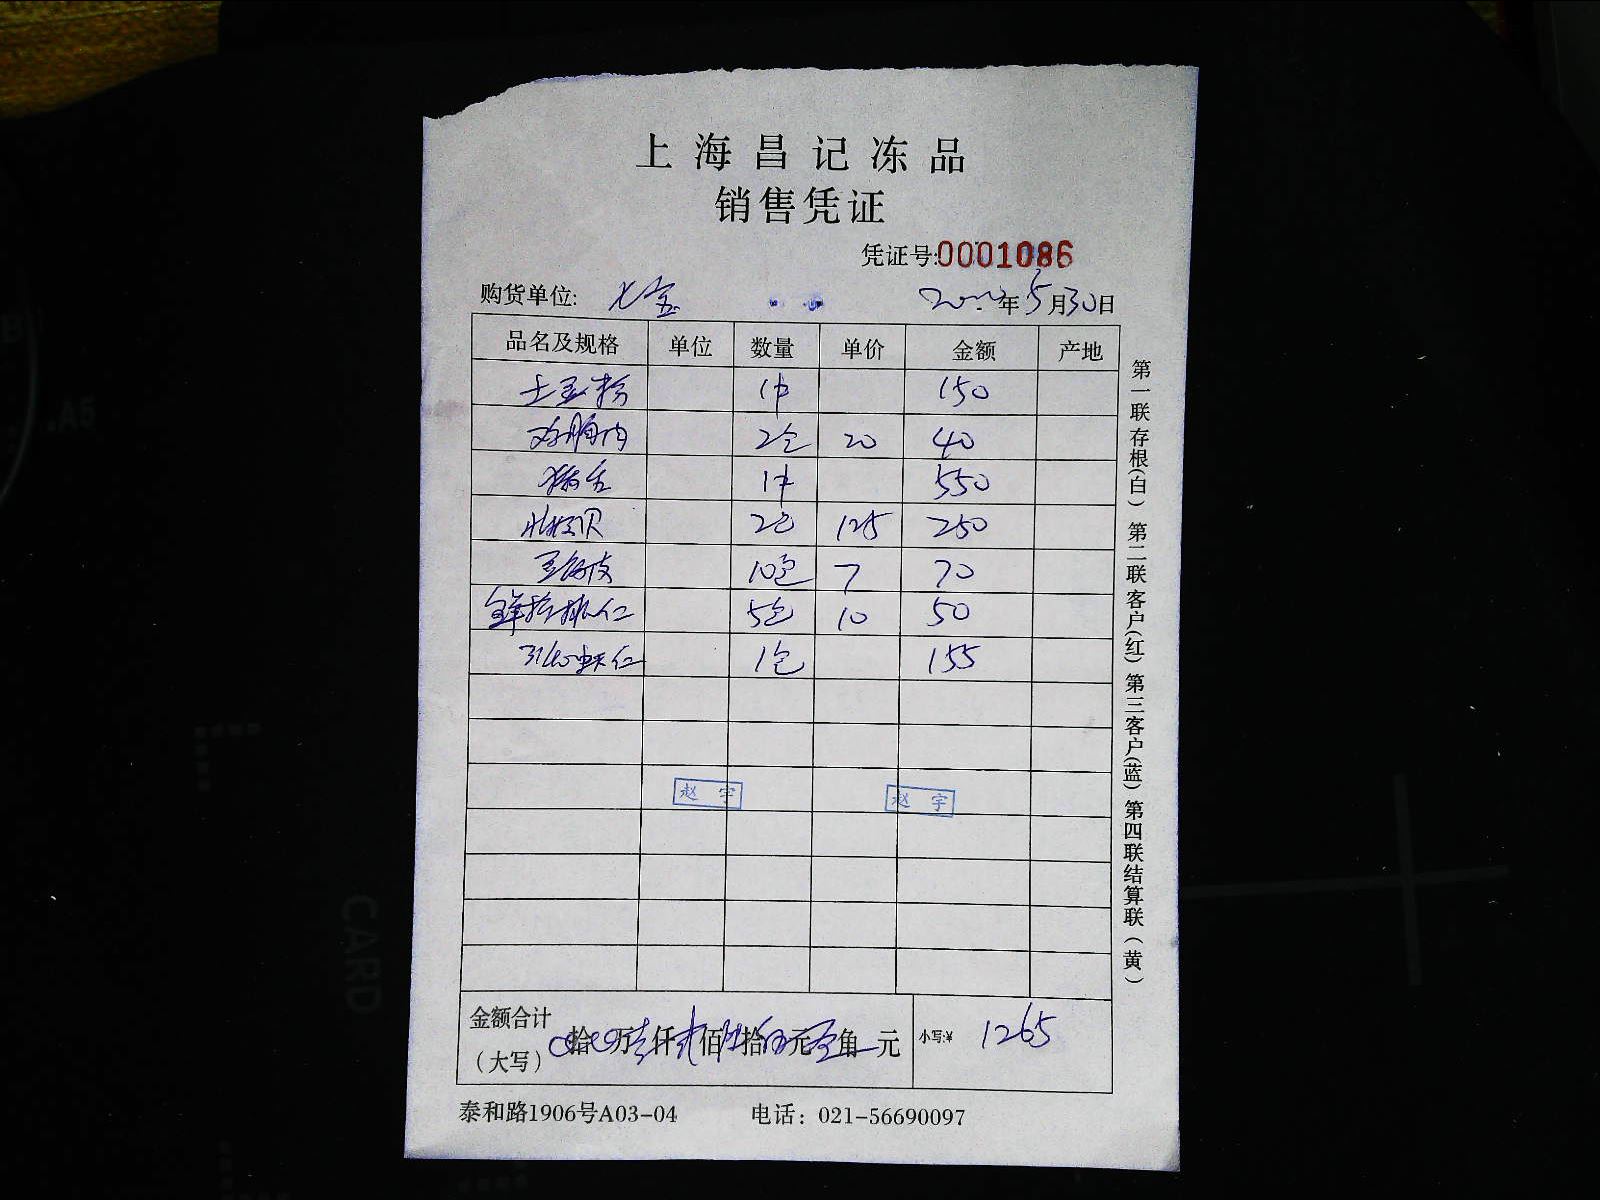 上海昌记冻品
销售凭证
凭证号:0001086
购货单位: 七宝 2022年5月30日
品名及规格 单位 数量 单价 金额 产地
土豆粉 1件 150
鸡胸肉 2包 20 40
猪舌 1件 550
扇贝 2包 125 250
10包 7 70
鲜 仁 5包 10 50
31/40虾仁 1包 155
赵宇 赵宇
金额合计
(大写) 拾 万壹仟贰佰陆拾伍元零角 元 小写:¥ 1265
泰和路1906号A03-04 电话: 021-56690097
第一联存根(白) 第二联客户(红) 第三客户(蓝) 第四联结算联(黄)
CARD
.A5
B